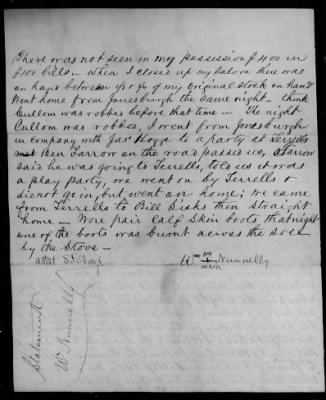 There was not seen in my possession $400 in
$100 bills — when I closed up my Saloon there was
on hand between 1/3 & 1/2 of my original stock on hand
Went home from Jonesburgh the same night — think
Cullom was robbed before that time — The night
Cullom was robbed, I went from Jonesburgh
in company with Jas Hogge to a party at Terrells
met Ben Farrow on the road passed us, Farrow
said he was going to Terrells, told us it was
a play party, we went on by Terrells &
didnt go in, but went on home; we came
from Terrells to Bill Sisks then straight
home — Wore pair calf skin boots that night
one of the boots was burnt across the sole
by the Stove —
attest S. Sharp
Wm his + mark Nunnelly
Statement
Wm Nunnelly